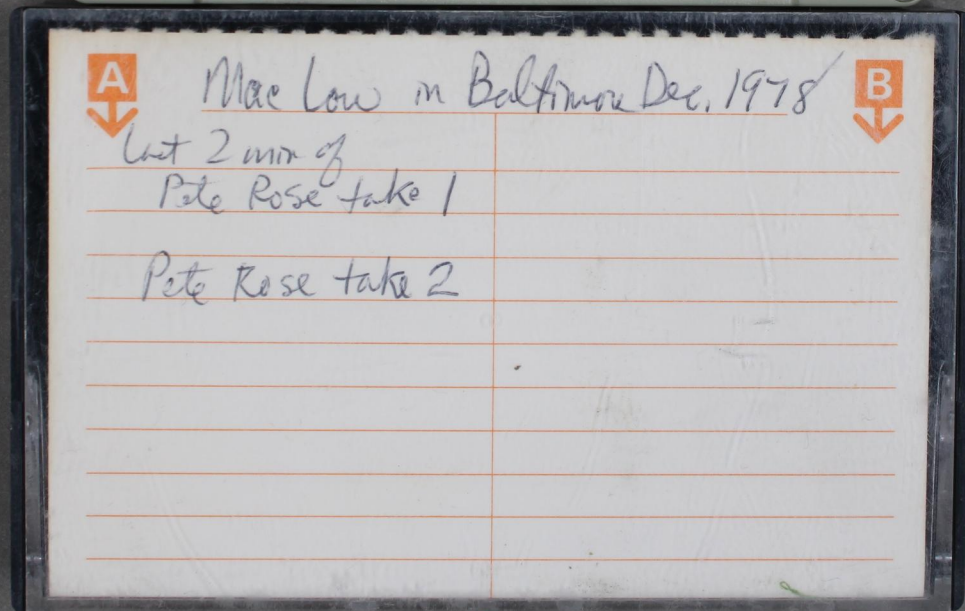 A
Mac Low in Baltimore Dec. 1978
B
Last 2 min of
Pete Rose take 1
Pete Rose take 2